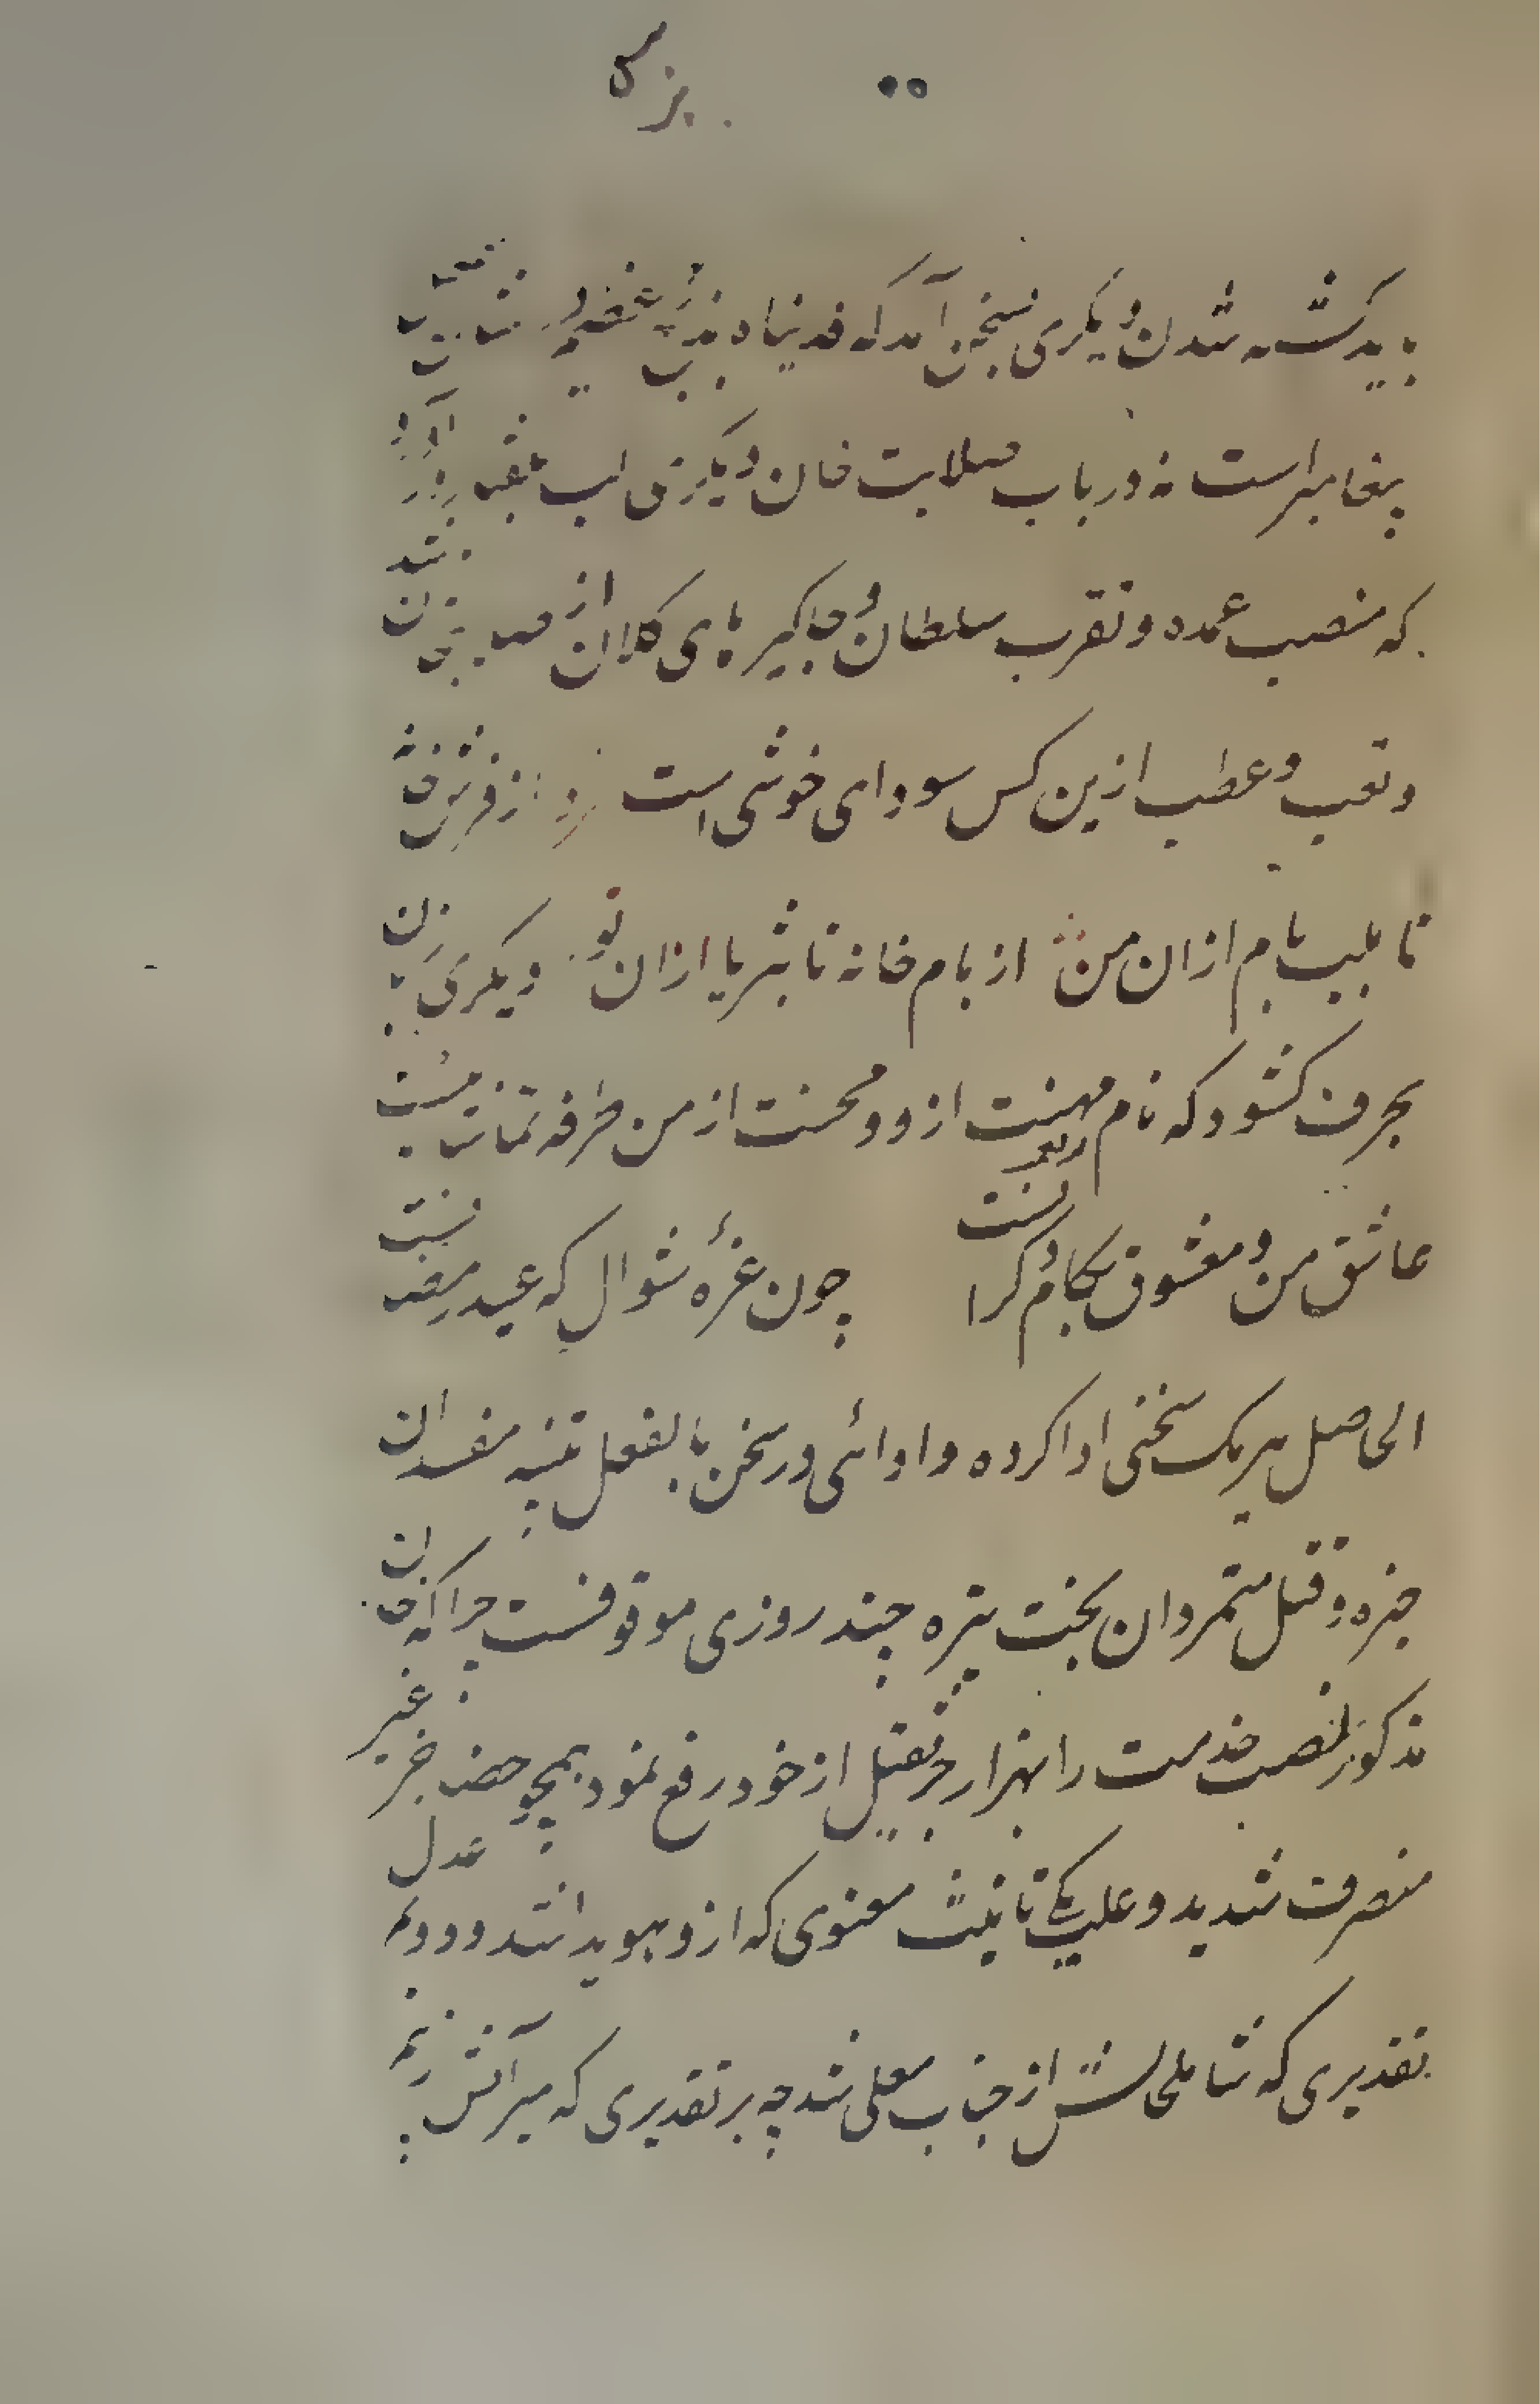 باید کشته شدن و دیگری بسخن آمد که فدیناه بذبح عظیم در شان
پیغامبر است نه در باب صلابت خان دیگری لب بتقریر آورد
که منصب عمده و تقرب سلطان و جاگیرهای کلان از صاحب و شدن
و تعب و عطب ازین کس سودای خوشی است از فرش خانه
تا بلب بام ازان من از بام خانه تا بثریا ازان تو دیگری زبان
بحرف کشود که نام مهینت ازو و محنت از من طرفه تماشائیست
عاشق من و معشوق بکام دگرانست چون غرهٔ شوال که عید رمضانست
الحاصل هر یک سخنی ادا کرده و ادائی در سخن بالفعل تنبیه مفسدان
خیره و قتل متمردان بخت تیره چند روزی موقوفست چرا که خان
مذکور نصب خدمت را بهزار جر ثقیل از خود رفع نمود همچو حضرت غیر
منصرف شدید و علیت تانیث معنوی که ازو هویدا شد و دویم عدل
تقدیری که شامل حالش از جناب معلی شد چه بر تقدیری که میر آتش